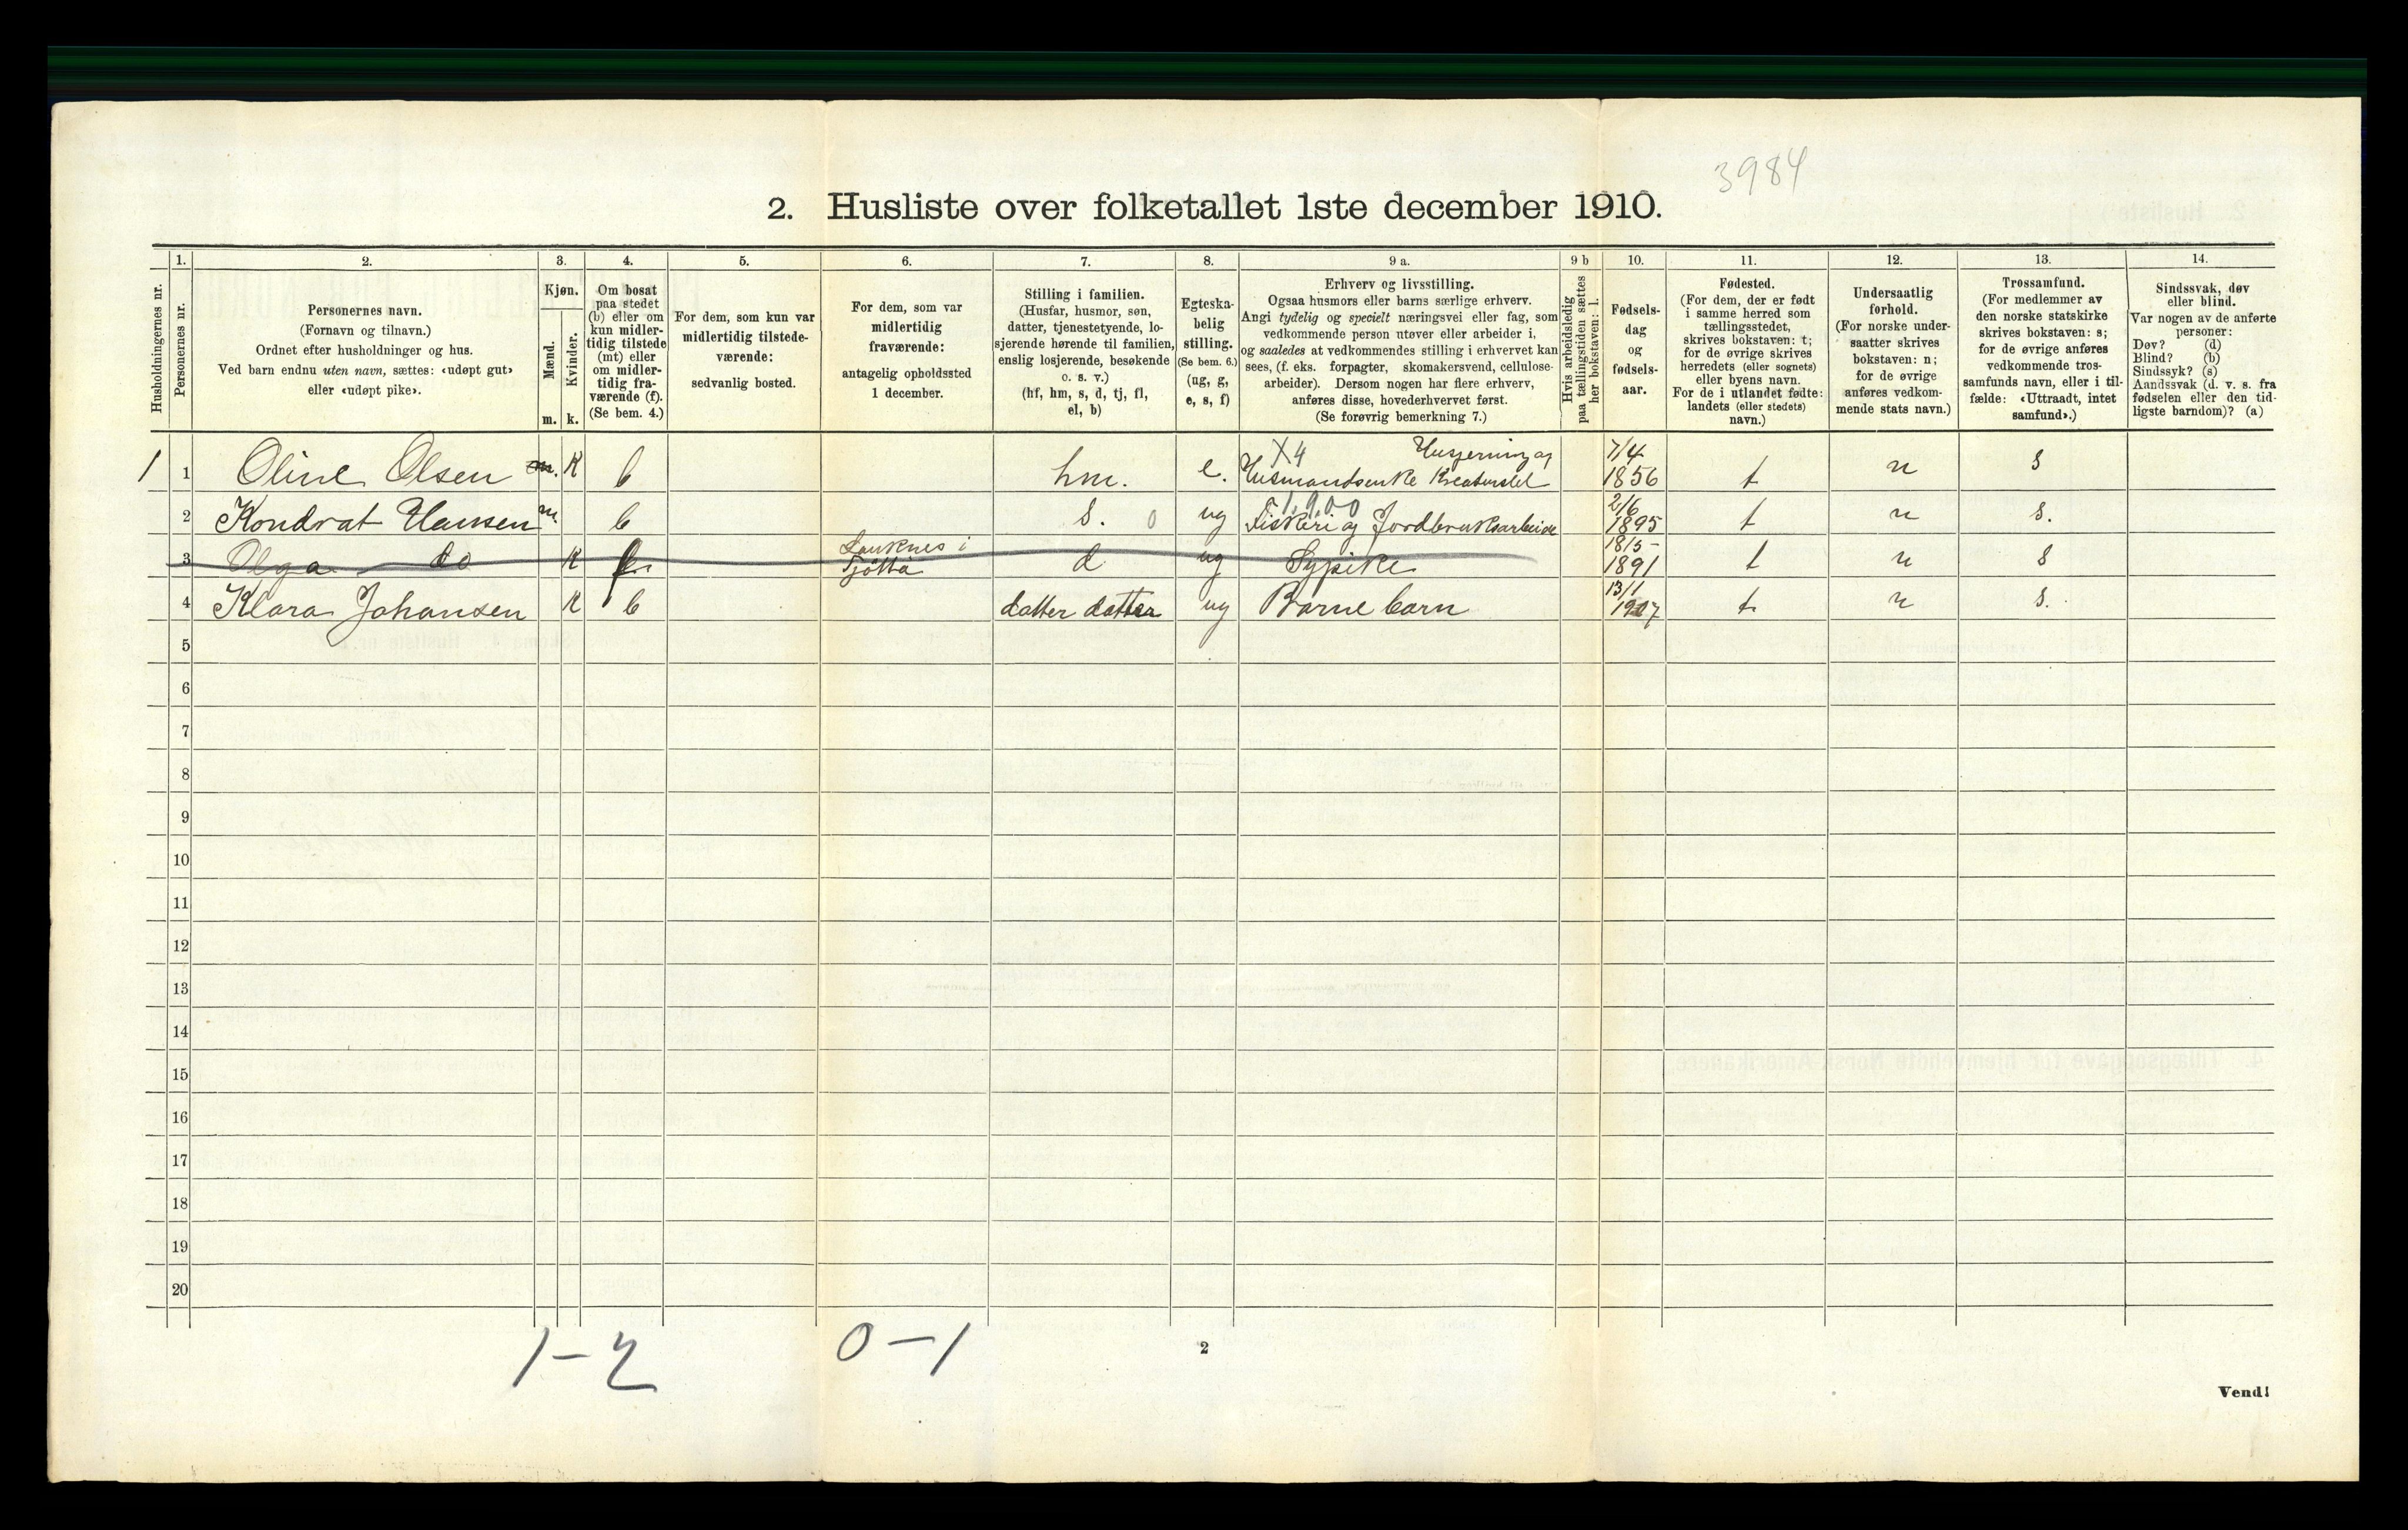 3984
2. Husliste over folketallet 1ste december 1910.
Husholdningernes nr.
1.
Personernes nr.
2.
Personernes navn.
(Fornavn og tilnavn.)
Ordnet efter husholdninger og hus.
Ved barn endnu uten navn, sættes: «udøpt gut»
eller «udøpt pike».
3.
Kjøn.
Mænd.
m.
Kvinder.
k.
4.
Om bosat
paa stedet
(b) eller om
kun midler-
tidig tilstede
(mt) eller
om midler-
tidig fra-
værende (f).
(Se bem. 4.)
5.
For dem, som kun var
midlertidig tilstede-
værende:
sedvanlig bosted.
6.
For dem, som var
midlertidig
fraværende:
antagelig opholdssted
1 december.
7.
Stilling i familien.
(Husfar, husmor, søn,
datter, tjenestetyende, lo-
sjerende hørende til familien,
enslig losjerende, besøkende
o. s. v.)
(hf, hm, s, d, tj, fl,
el, b)
8.
Egteska-
belig
stilling.
(Se bem. 6.)
(ug, g,
e, s, f)
9 a.
Erhverv og livsstilling.
Ogsaa husmors eller barns særlige erhverv.
Angi tydelig og specielt næringsvei eller fag, som
vedkommende person utøver eller arbeider i,
og saaledes at vedkommendes stilling i erhvervet kan
sees, (f. eks. forpagter, skomakersvend, cellulose-
arbeider). Dersom nogen har flere erhverv,
anføres disse, hovederhvervet først.
(Se forøvrig bemerkning 7.)
9 b
Hvis arbeidsledig
paa tællingstiden sættes
her bokstaven: l.
10.
Fødsels-
dag
og
fødsels-
aar.
11.
Fødested.
(For dem, der er født
i samme herred som
tællingsstedet,
skrives bokstaven: t;
for de øvrige skrives
herredets (eller sognets)
eller byens navn.
For de i utlandet fødte:
landets (eller stedets)
navn.)
12.
Undersaatlig
forhold.
(For norske under-
saatter skrives
bokstaven: n;
for de øvrige
anføres vedkom-
mende stats navn.)
13.
Trossamfund.
(For medlemmer av
den norske statskirke
skrives bokstaven: s;
for de øvrige anføres
vedkommende tros-
samfunds navn, eller i til-
fælde: «Uttraadt, intet
samfund».)
14.
Sindssvak, døv
eller blind.
Var nogen av de anførte
personer:
Døv? (d)
Blind? (b)
Sindssyk? (s)
Aandssvak (d. v. s. fra
fødselen eller den tid-
ligste barndom)? (a)
X4 Husgjerning og 7/4
1 1 Oline Olsen m. K b hm. e. Husmandsenke Kreaturstel 1856 t n s
1.9.00 2/6
2 Kondrat Hansen m. b s. 0 ug Fiskeri og Jordbruksarbeide 1895 t n s.
i 18/5-
3 Olga do K f. Tjøtta d ug Sypike 1891 t n s
13/1
4 Klara Johansen K b datter datter ug Barnebarn 1907 t. n s.
5
6
7
8
9
10
11
12
13
14
15
16
17
18
19
20
1-2 0-1
2
Vend!